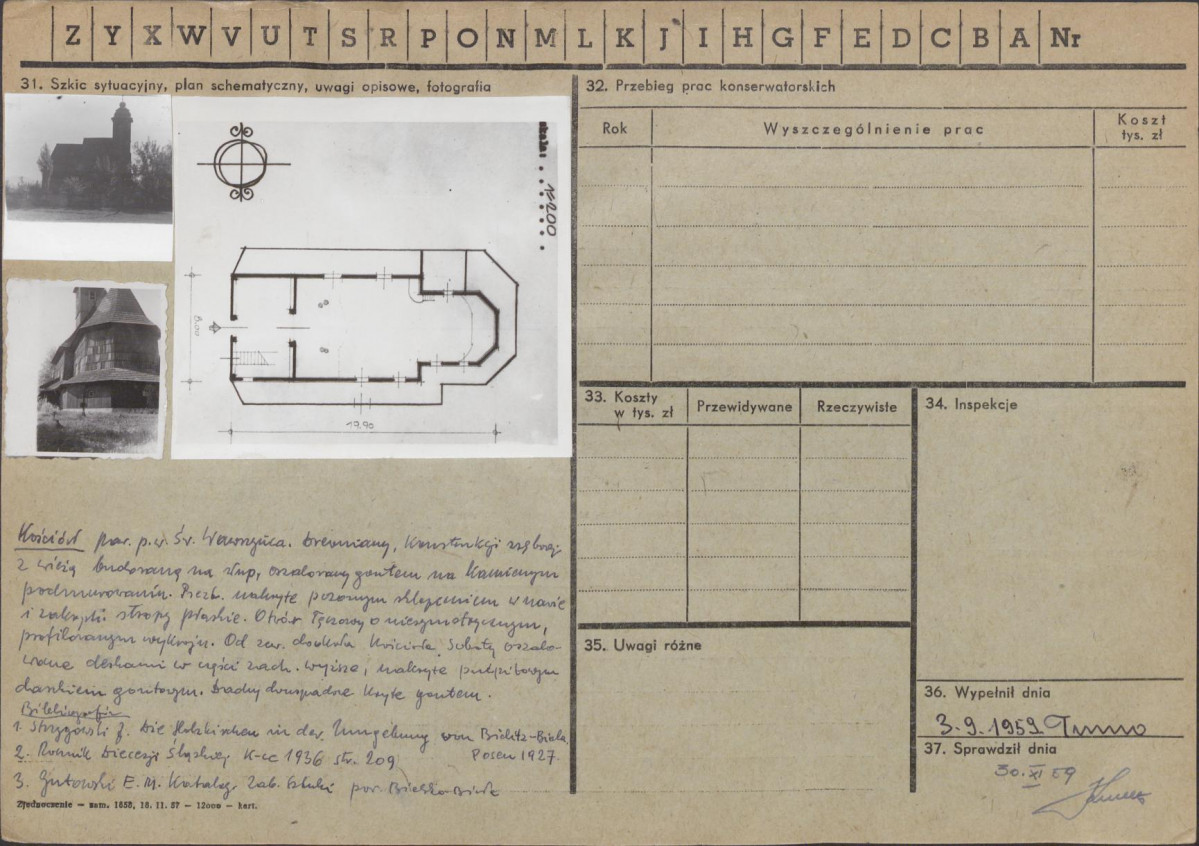 Z Y X W V U T S R P O N M L K J I H G F E D C B A Nr
31. Szkic sytuacyjny, plan schematyczny, uwagi opisowe, fotografia
skala: 1:200
8.00
17.90
Kościół par. p.w. Św. Wawrzyńca. Drewniany, konstrukcji zrębowej
z wieżą budowaną na słup, oszalowany gontem na kamiennym
podmurowaniu. Prezb. nakryte pozornym sklepieniem w nawie
i zakrystii stropy płaskie. Otwór tęczowy o niesymetrycznym,
profilowanym wykroju. Od zew. dookoła kościoła Soboty oszalo-
wane deskami w części zach. wyższe, nakryte pulpitowym
daszkiem gontowym. Dachy dwuspadne kryte gontem.
Bibliografia
1. Strzygowski J. Die Holzkirchen in der Umgebung von Bielitz-Biala
Posen 1927.
2. Rocznik Diecezji Śląskiej K-ce 1936 str. 209
3. Gutowski E. M. Katalog. Zab. Sztuki pow. Bielsko Biała
Zjednoczenie — zam. 1658, 18. 11. 57 — 12000 — kart.
32. Przebieg prac konserwatorskich
Rok
Wyszczególnienie prac
Koszt
tys. zł
33. Koszty
w tys. zł
Przewidywane
Rzeczywiste
34. Inspekcje
35. Uwagi różne
36. Wypełnił dnia
3.9.1959
37. Sprawdził dnia
30. XI 59